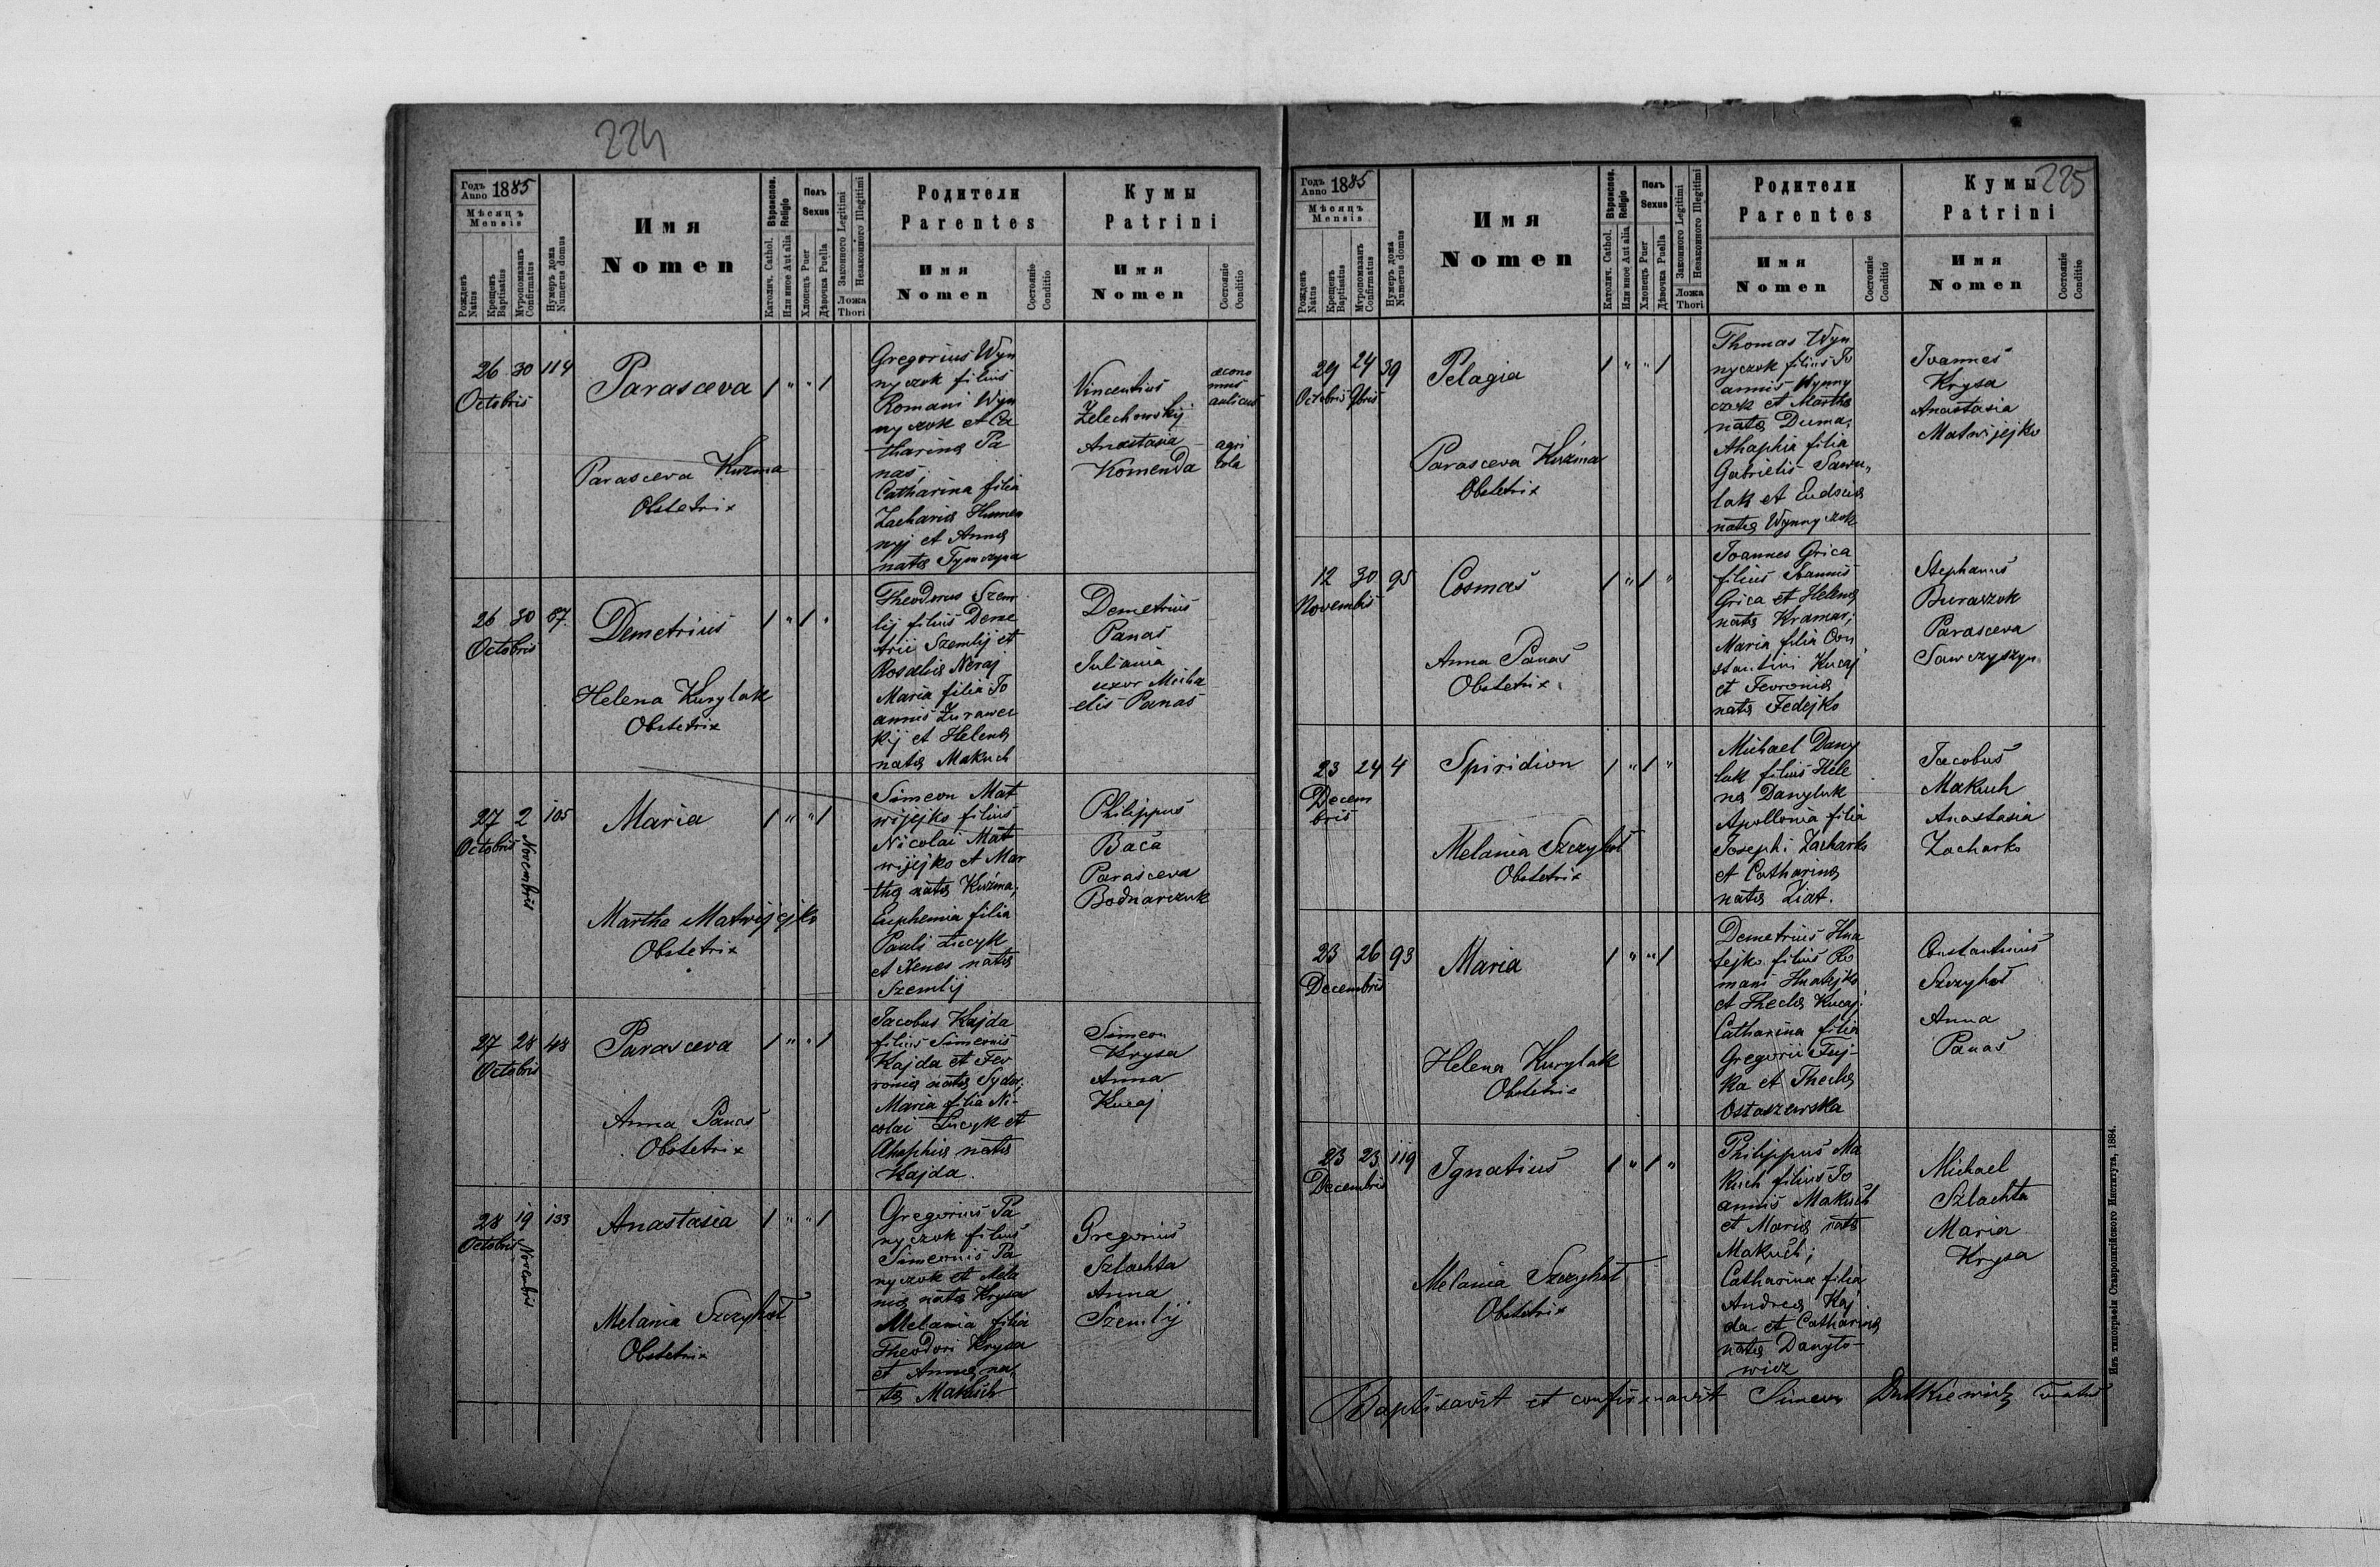 224
Годъ Anno 1885
Мѣсяцъ
Mensis
Рожденъ Natus
Крещенъ Baptisatus
Мѵропомазанъ Confirmatus
Нумеръ дома Numerus domus
Имя
Nomen
Вѣроиспов. Religio
Католич. Cathol.
Или иное Aut alia
Полъ
Sexus
Хлопецъ Puer
Дѣвочка Puella
Законного Legitimi
Незаконного Illegitimi
Ложа
Thori
Родители
Parentes
Имя
Nomen
Состояніе Conditio
Кумы
Patrini
Имя
Nomen
Состояніе Conditio
26 30 114
Octobris
Parasceva
Parasceva Kuzma
Obstetrix
Gregorius Wyn
nyczok filius
Romani Wyn
nyczok et Ca
tharina Pa
nas,
Catharina filia
Zacharia Humen
nyj et Anna
nata Tymczyna
Vincentius
Zelechowskij
Anastasia
Komenda
œcono
mus
aulicus
agri
cola
26 30 87.
Octobris
Demetrius
Helena Kurylak
Obstetrix
Theodorus Szem
lij filius Deme
trii Szemlij et
Rosalia Neraj
Maria filia Jo
annis Zurawec
kij et Helena
nata Makuch
Demetrius
Panas
Juliania
uxor Micha
elis Panas
27 2 105
Octobris Novembris
Maria
Martha Matwijejko
Obstetrix
Simeon Mat
wijejko filius
Nicolai Mat
wijejko et Mar
tha nata Kuzma;
Euphemia filia
Pauli Lucyk
et Xenes nata
Szemlij
Philippus
Baca
Parasceva
Bodnarczuk
27 28 48
Octobris
Parasceva
Anna Panas
Obstetrix
Jacobus Kajda
filius Simeonis
Kajda et Fev
ronia nata Sydor,
Maria filia Ni-
colai Lucyk et
Ahaphia nata
Kajda.
Simeon
Krysa
Anna
Kucaj
28 19 133
Octobris Novembris
Anastasia
Melania Szczyhot
Obstetrix
Gregorius Pa
nyczok filius
Simeonis Pa
nyczok et Mela
nia nata Krysa
Melania filia
Theodori Krysa
et Anna na
ta Makuch
Gregorius
Szlachta
Anna
Szemlij
225
Годъ Anno 1885
Мѣсяцъ
Mensis
Рожденъ Natus
Крещенъ Baptisatus
Мѵропомазанъ Confirmatus
Нумеръ дома Numerus domus
Имя
Nomen
Вѣроиспов. Religio
Католич. Cathol.
Или иное Aut alia
Полъ
Sexus
Хлопецъ Puer
Дѣвочка Puella
Законного Legitimi
Незаконного Illegitimi
Ложа
Thori
Родители
Parentes
Имя
Nomen
Состояніе Conditio
Кумы
Patrini
Имя
Nomen
Состояніе Conditio
29 24 39
Octobris 9bris
Pelagia
Parasceva Kuzma
Obstetrix
Thomas Wyn
nyczok filius Jo
annis Wynny
czok et Martha
nata Duma,
Ahaphia filia
Gabrielis Sawu,
lak et Eudocia
nata Wynnyczok
Joannes
Krysa
Anastasia
Matwijejko
12 30 95
Novembris
Cosmas
Anna Panas
Obstetrix
Joannes Grica
filius Joannis
Grica et Helena
nata Kramar;
Maria filia Con
stantini Kucaj
et Fevronia
nata Fedejko
Stephanus
Buraszok
Parasceva
Sawczyszyn
23 24 4
Decem
bris
Spiridion
Melania Szczyhot
Obstetrix
Michael Dany
luk filius Hele
na Danyluk
Apollonia filia
Josephi Zacharko
et Catharina
nata Ziat.
Jacobus
Makuch
Anastasia
Zacharko
23 26 93
Decembris
Maria
Helena Kurylak
Obstetrix
Demetrius Hna
tejko filius Ro
mani Hnatejko
et Thecla Kucaj.
Catharina filia
Gregorii Fuj-
ka et Thecla
Ostaszewska
Constantinus
Szczyhot
Anna
Panas
23 23 119
Decembris
Ignatius
Melania Szczyhot
Obstetrix
Philippus Ma
kuch filius Jo
annis Makuch
et Maria nata
Makuch;
Catharina filia
Andrea Kaj
da et Catharina
nata Danyło-
wicz
Michael
Szlachta
Maria
Krysa
Baptisavit et confirmavit Simeon Dutkiewicz
Изъ типографіи Ставропигійского Института, 1884.